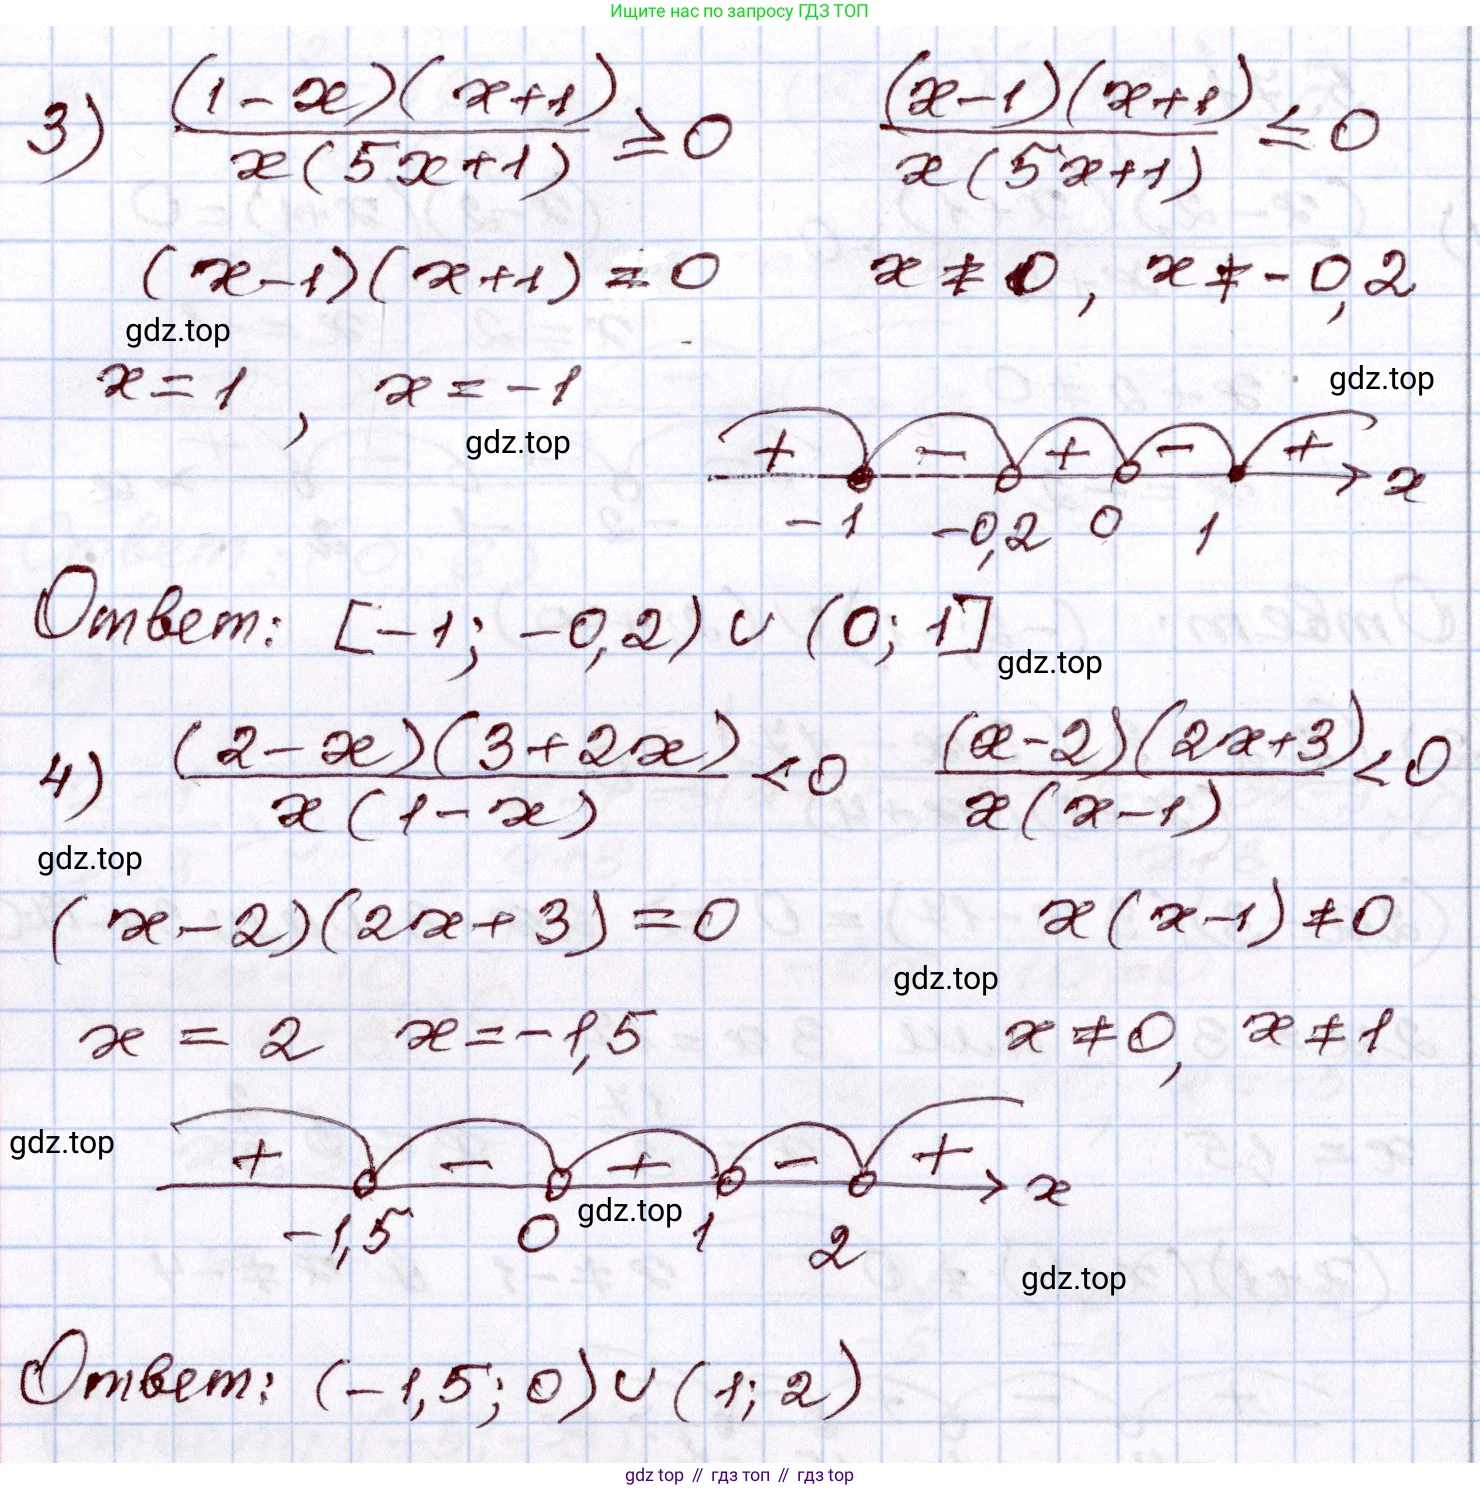 Ищите нас по запросу ГДЗ ТОП
3) (1-x)(x+1) / x(5x+1) ≥ 0    (x-1)(x+1) / x(5x+1) ≤ 0
(x-1)(x+1) = 0    x ≠ 0, x ≠ -0,2
gdz.top
x = 1, x = -1
gdz.top
gdz.top
+ - + - + x
-1 -0,2 0 1
Ответ: [-1; -0,2) ∪ (0; 1]
gdz.top
4) (2-x)(3+2x) / x(1-x) < 0    (x-2)(2x+3) / x(x-1) < 0
gdz.top
(x-2)(2x+3) = 0    x(x-1) ≠ 0
gdz.top
x = 2 x = -1,5    x ≠ 0, x ≠ 1
gdz.top
+ - + - + x
gdz.top
-1,5 0 1 2
gdz.top
Ответ: (-1,5; 0) ∪ (1; 2)
gdz top // гдз топ // гдз top